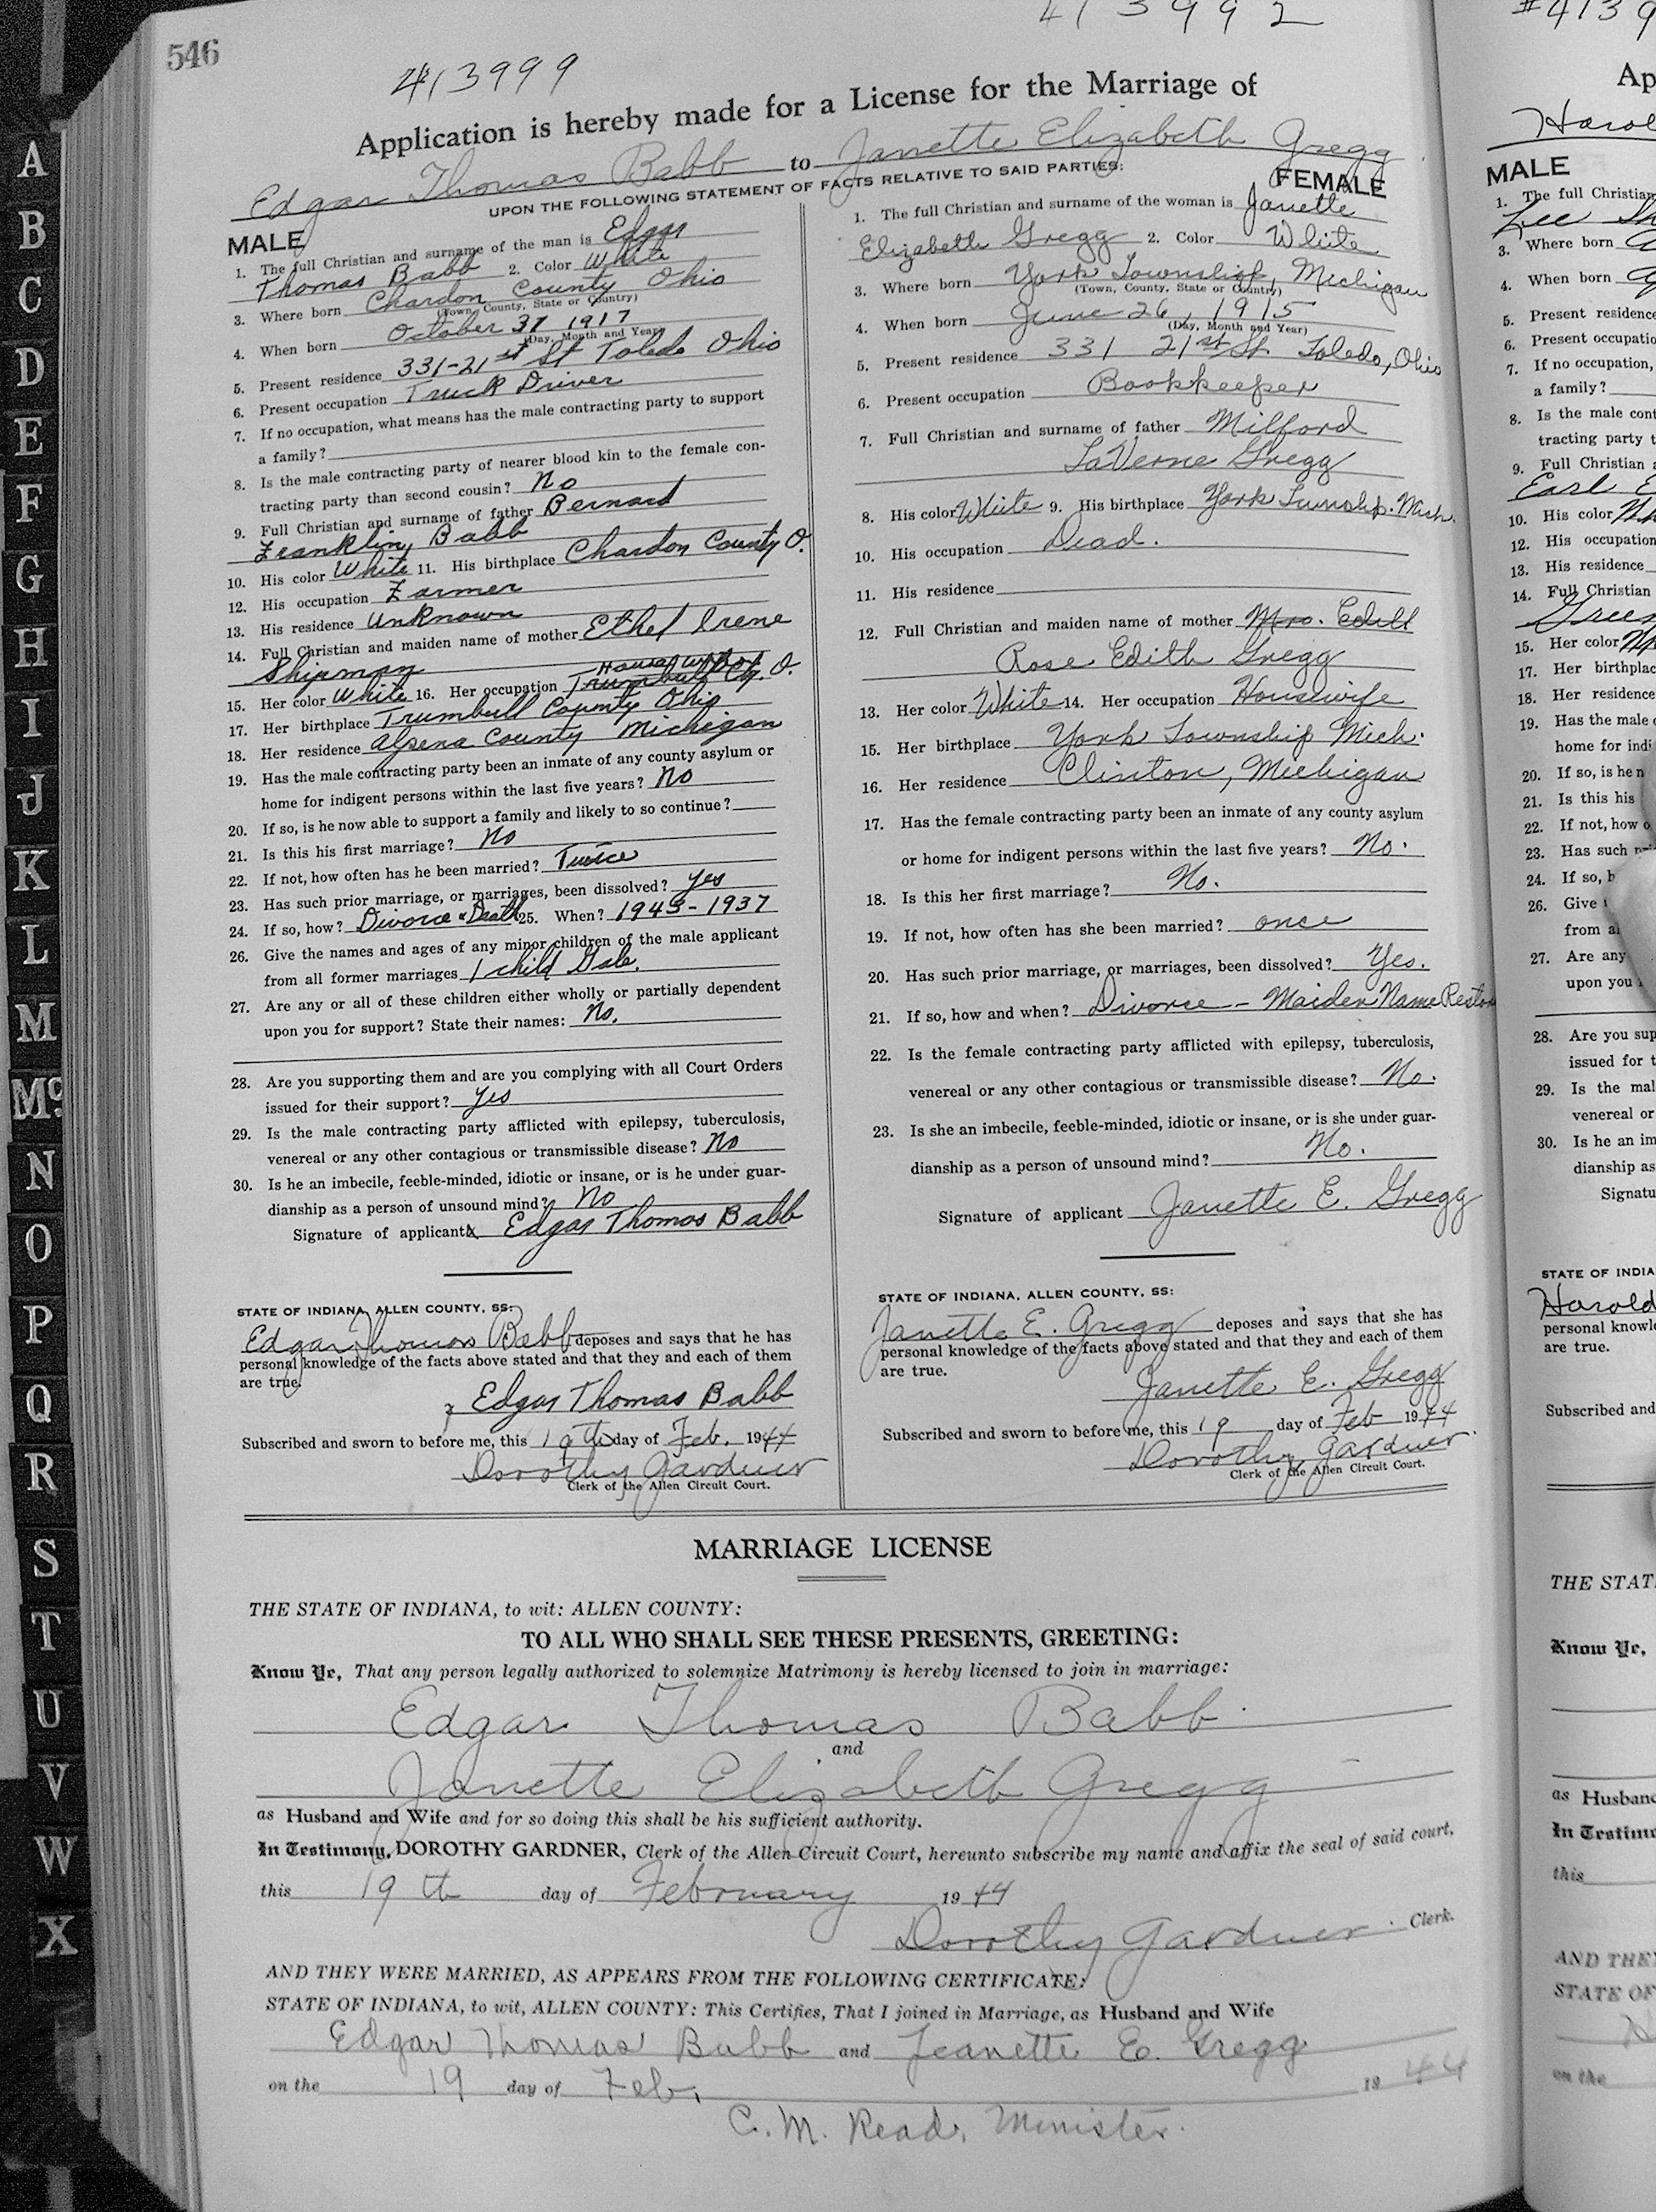 546
413992
413999
Application is hereby made for a License for the Marriage of
Edgar Thomas Babb to Janette Elizabeth Gregg
UPON THE FOLLOWING STATEMENT OF FACTS RELATIVE TO SAID PARTIES:
MALE
1. The full Christian and surname of the man is Edgar
Thomas Babb 2. Color White
3. Where born Chardon County Ohio
(Town, County, State or Country)
4. When born October 31 1917
(Day, Month and Year)
5. Present residence 331-21st St Toledo Ohio
6. Present occupation Truck Driver
7. If no occupation, what means has the male contracting party to support
a family?
8. Is the male contracting party of nearer blood kin to the female con-
tracting party than second cousin? No
9. Full Christian and surname of father Bernard
Franklin Babb
10. His color White 11. His birthplace Chardon County O.
12. His occupation Farmer
13. His residence Unknown
14. Full Christian and maiden name of mother Ethel Irene
Shipman
15. Her color White 16. Her occupation Housewife Trumbull Cty. O.
17. Her birthplace Trumbull County Ohio
18. Her residence Alpena County Michigan
19. Has the male contracting party been an inmate of any county asylum or
home for indigent persons within the last five years? No
20. If so, is he now able to support a family and likely to so continue?
21. Is this his first marriage? No
22. If not, how often has he been married? Twice
23. Has such prior marriage, or marriages, been dissolved? Yes
24. If so, how? Divorce & Death 25. When? 1943-1937
26. Give the names and ages of any minor children of the male applicant
from all former marriages 1 child Gale.
27. Are any or all of these children either wholly or partially dependent
upon you for support? State their names: No.
28. Are you supporting them and are you complying with all Court Orders
issued for their support? Yes
29. Is the male contracting party afflicted with epilepsy, tuberculosis,
venereal or any other contagious or transmissible disease? No
30. Is he an imbecile, feeble-minded, idiotic or insane, or is he under guar-
dianship as a person of unsound mind? No
Signature of applicant x Edgar Thomas Babb
STATE OF INDIANA, ALLEN COUNTY, SS:
Edgar Thomas Babb deposes and says that he has
personal knowledge of the facts above stated and that they and each of them
are true.
Edgar Thomas Babb
Subscribed and sworn to before me, this 19th day of Feb. 1944
Dorothy Gardner
Clerk of the Allen Circuit Court.
FEMALE
1. The full Christian and surname of the woman is Janette
Elizabeth Gregg 2. Color White
3. Where born York Township, Michigan
(Town, County, State or Country)
4. When born June 26, 1915
(Day, Month and Year)
5. Present residence 331 21st St Toledo, Ohio
6. Present occupation Bookkeeper
7. Full Christian and surname of father Milford
LaVerne Gregg
8. His color White 9. His birthplace York Township. Mich.
10. His occupation Dead.
11. His residence
12. Full Christian and maiden name of mother Mrs. Edith
Rose Edith Gregg
13. Her color White 14. Her occupation Housewife
15. Her birthplace York Township Mich.
16. Her residence Clinton, Michigan
17. Has the female contracting party been an inmate of any county asylum
or home for indigent persons within the last five years? No.
18. Is this her first marriage? No.
19. If not, how often has she been married? once
20. Has such prior marriage, or marriages, been dissolved? Yes.
21. If so, how and when? Divorce - Maiden Name Restor
22. Is the female contracting party afflicted with epilepsy, tuberculosis,
venereal or any other contagious or transmissible disease? No.
23. Is she an imbecile, feeble-minded, idiotic or insane, or is she under guar-
dianship as a person of unsound mind? No.
Signature of applicant Janette E. Gregg
STATE OF INDIANA, ALLEN COUNTY, SS:
Janette E. Gregg deposes and says that she has
personal knowledge of the facts above stated and that they and each of them
are true.
Janette E. Gregg
Subscribed and sworn to before me, this 19 day of Feb 1944
Dorothy Gardner
Clerk of the Allen Circuit Court.
MARRIAGE LICENSE
THE STATE OF INDIANA, to wit: ALLEN COUNTY:
TO ALL WHO SHALL SEE THESE PRESENTS, GREETING:
Know Ye, That any person legally authorized to solemnize Matrimony is hereby licensed to join in marriage:
Edgar Thomas Babb
and
Janette Elizabeth Gregg
as Husband and Wife and for so doing this shall be his sufficient authority.
In Testimony, DOROTHY GARDNER, Clerk of the Allen Circuit Court, hereunto subscribe my name and affix the seal of said court,
this 19th day of February 1944
Dorothy Gardner Clerk.
AND THEY WERE MARRIED, AS APPEARS FROM THE FOLLOWING CERTIFICATE:
STATE OF INDIANA, to wit, ALLEN COUNTY: This Certifies, That I joined in Marriage, as Husband and Wife
Edgar Thomas Babb and Jeanette E. Gregg
on the 19 day of Feb. 1944
C. M. Read, Minister.
A
B
C
D
E
F
G
H
I
J
K
L
M
Mc
N
O
P
Q
R
S
T
U
V
W
X
#4139
Ap
Harol
MALE
1. The full Christian
Lee
3. Where born
4. When born
5. Present residence
6. Present occupatio
7. If no occupation,
a family?
8. Is the male cont
tracting party t
9. Full Christian
Earl
10. His color
12. His occupation
13. His residence
14. Full Christian
Green
15. Her color
17. Her birthplac
18. Her residence
19. Has the male
home for indi
20. If so, is he n
21. Is this his
22. If not, how o
23. Has such
24. If so, h
26. Give
from a
27. Are any
upon you
28. Are you sup
issued for t
29. Is the mal
venereal or
30. Is he an im
dianship as
Signatu
STATE OF INDIA
Harold
personal knowle
are true.
Subscribed and
THE STAT
Know Ye,
as Husband
In Testimo
this
AND THEY
STATE OF
on the